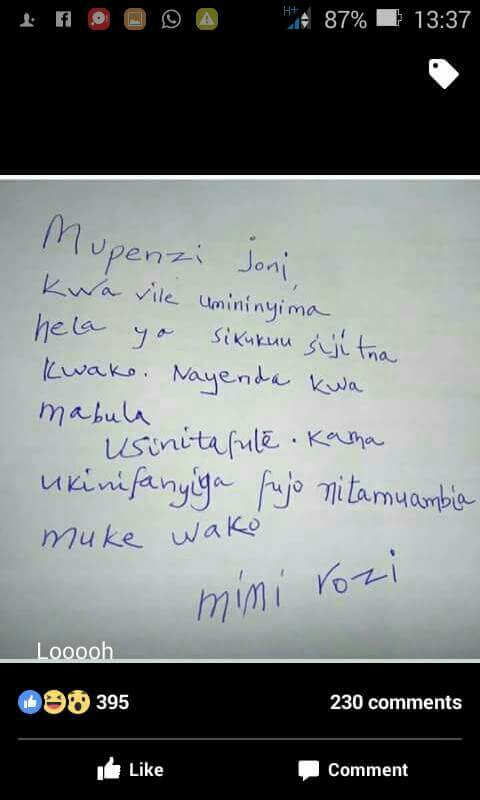 H+ 87% 13:37
Mupenzi joni,
Kwa vile umininyima
hela ya sikukuu sijitna
Kwako. Nayenda kwa
mabula
Usinitafulē. Kama
ukinifanyiga fujo nitamuambia
muke wako
mimi rozi
Looooh
395 230 comments
Like Comment